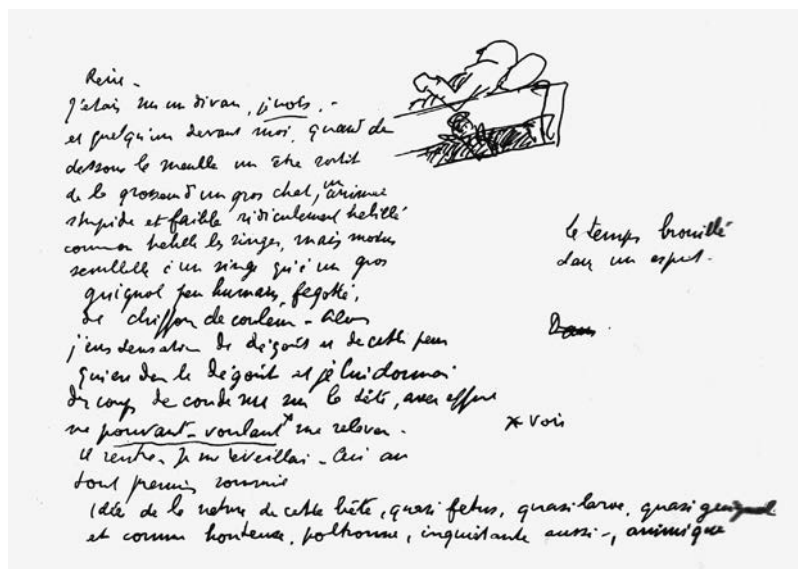 Reine -
j'étais sur un divan, j'crois, -
et quelqu'un devant moi, quand de
dessous le meuble un être sortit
de la grosseur d'un gros chat, un animal
stupide et faible ridiculement habillé
comme on habille les singes, mais moins
semblable à un singe qu'à un gros
guignol peu humain, fagoté,
de chiffon de couleur - Alors
j'eus sensation de dégoût et de cette peur
qui est dans le dégoût et je lui donnai
des coups de coude sur la tête, avec effort
ne pouvant - voulant * me relever -
il rentre. Je m'éveillai - Ceci au
tout premier sommeil
Idée de la nature de cette bête, quasi fetus, quasi larve, quasi guignol
et comme honteuse, poltronne, inquiétante aussi -, animique
le temps brouillé
dans un esprit.
* Vois